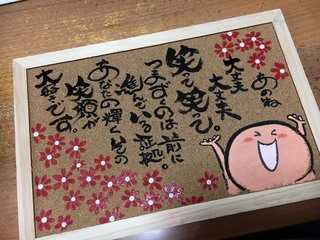 あのね
大丈夫
大丈夫
笑って笑って。
つまずくのは前に
進んでいる証拠。
あなたの輝くその
笑顔が
大好きです。